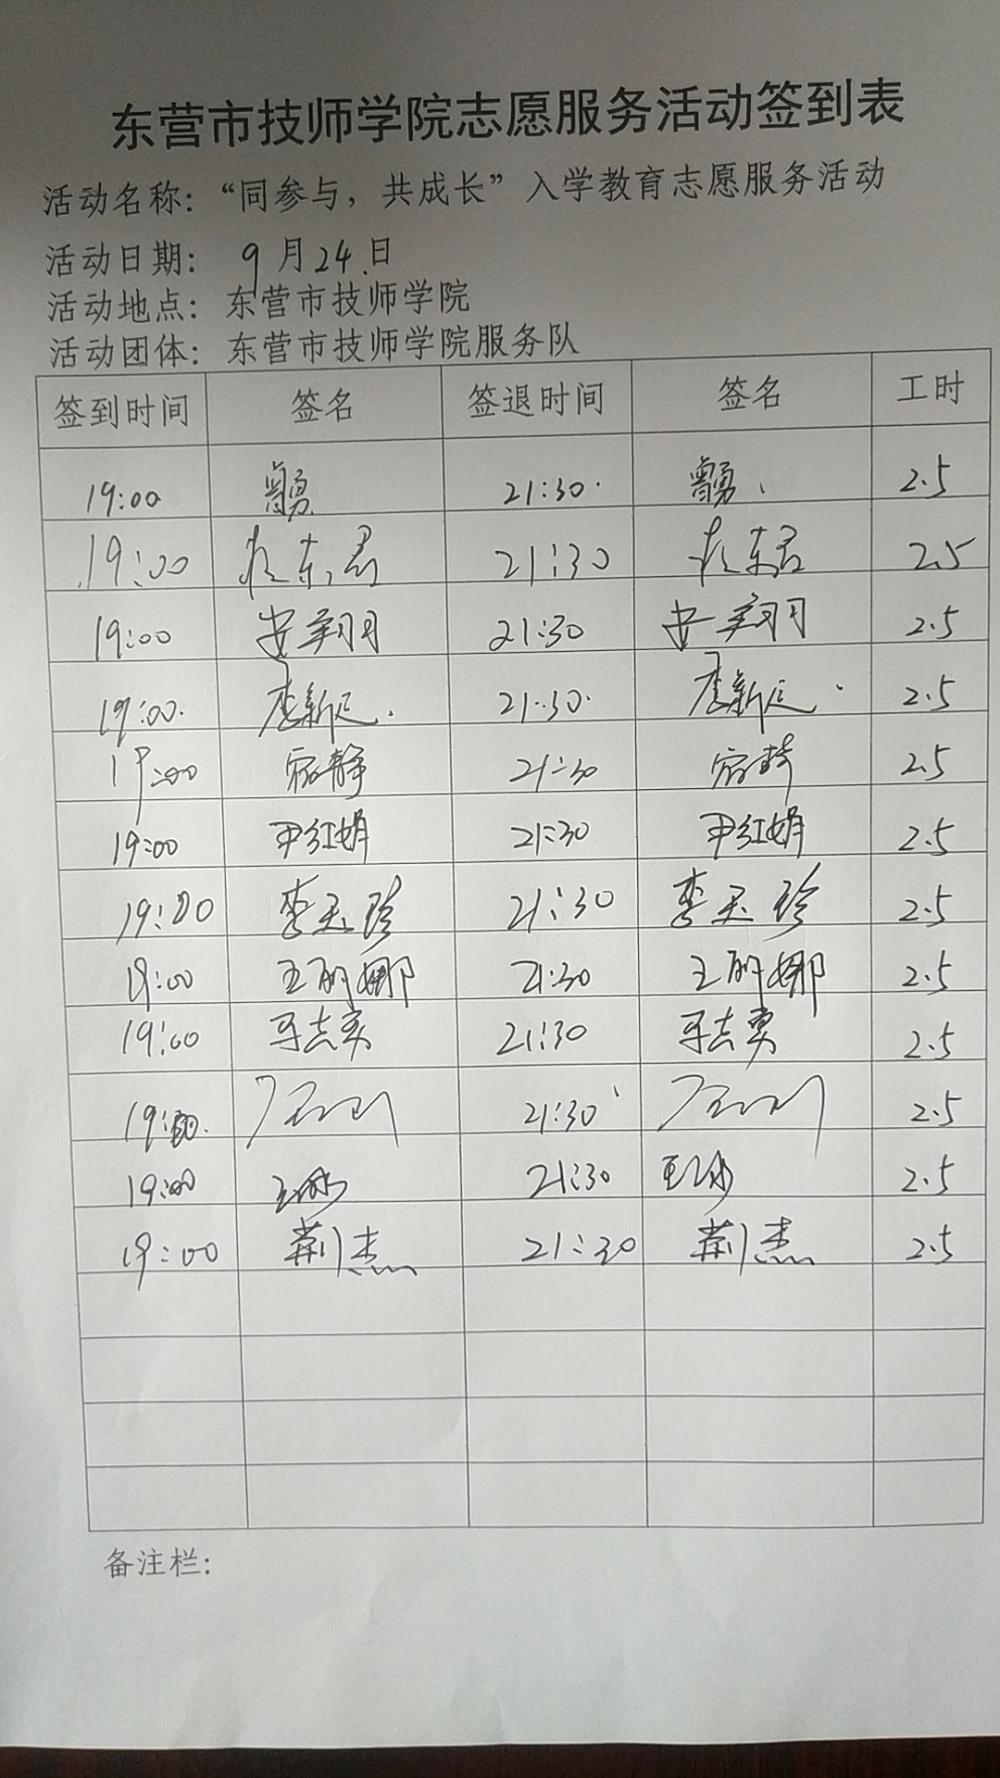 东营市技师学院志愿服务活动签到表
活动名称：“同参与，共成长”入学教育志愿服务活动
活动日期： 9月24.日
活动地点：东营市技师学院
活动团体：东营市技师学院服务队
签到时间 签名 签退时间 签名 工时
19:00 21:30 2.5
19:00 东君 21:30 东君 2.5
19:00 安翔 21:30 安翔 2.5
19:00 李新 21:30 李新 2.5
19:00 宿静 21:30 宿静 2.5
19:00 尹红娟 21:30 尹红娟 2.5
19:00 李玉珍 21:30 李玉珍 2.5
19:00 王丽娜 21:30 王丽娜 2.5
19:00 21:30 2.5
19:00 21:30 2.5
19:00 王 21:30 王 2.5
19:00 荆杰 21:30 荆杰 2.5
备注栏：